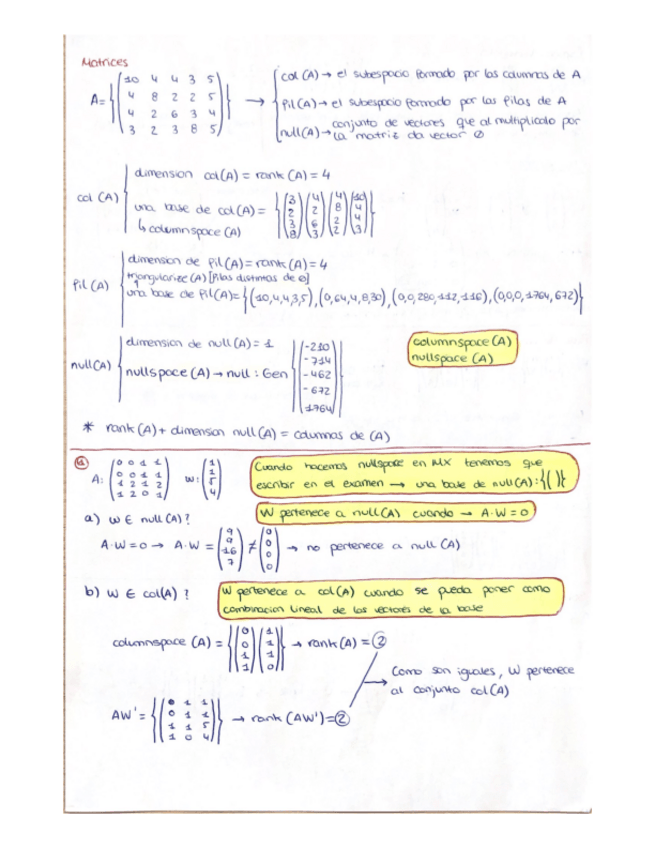 Matrices
A= {(10 4 4 3 5
4 8 2 2 5
4 2 6 3 4
3 2 3 8 5)} →
col (A) → el subespacio formado por las columnas de A
fil (A) → el subespacio formado por las filas de A
null(A) → conjunto de vectores que al multiplicalo por
la matriz da vector 0
col (A)
dimension col(A) = rank (A) = 4
una base de col(A) = {(3 2 3 8) (4 2 6 3) (4 8 2 2) (10 4 4 3)}
↳ columnspace (A)
fil (A)
dimension de fil(A) = rank(A) = 4
triangularize (A) [filas distintas de 0]
una base de fil(A) = {(10,4,4,3,5), (0,64,4,8,30), (0,0,280,112,116), (0,0,0,1764,672)}
null(A)
dimension de null(A) = 1
nullspace (A) → null : Gen {(-210 -714 -462 -672 1764)}
columnspace (A)
nullspace (A)
* rank (A) + dimension null (A) = columnas de (A)
① A: (0 0 1 1
0 0 1 1
1 2 1 2
1 2 0 1) w: (1 1 5 4)
Cuando hacemos nullspace en MX tenemos que
escribir en el examen → una base de null(A): {( )}
W pertenece a null(A) cuando → A·W = 0
a) w ∈ null (A)?
A·W = 0 → A·W = (9 9 16 7) ≠ (0 0 0 0) → no pertenece a null (A)
b) w ∈ col(A) ?
W pertenece a col(A) cuando se pueda poner como
combinacion lineal de los vectores de la base
columnspace (A) = {(0 0 1 1) (1 1 1 0)} → rank (A) = ②
Como son iguales, W pertenece
al conjunto col(A)
AW' = {(0 1 1
0 1 1
1 1 5
1 0 4)} → rank (AW') = ②